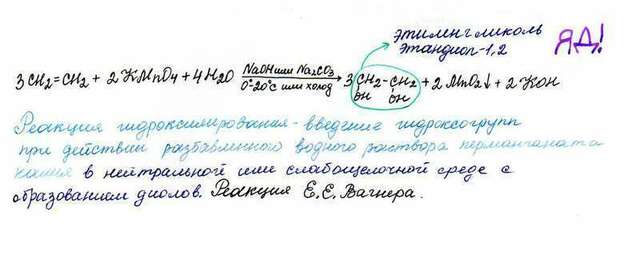 этиленгликоль
этандиол-1,2
ЯД!
NaOH или Na₂CO₃
3CH₂=CH₂ + 2KMnO₄ + 4H₂O → 3CH₂-CH₂ + 2MnO₂↓ + 2KOH
0°-20°C или холод
OH OH
Реакция гидроксилирования - введение гидроксогрупп
при действии разбавленного водного раствора перманганата
калия в нейтральной или слабощелочной среде с
образованием диолов. Реакция Е.Е. Вагнера.